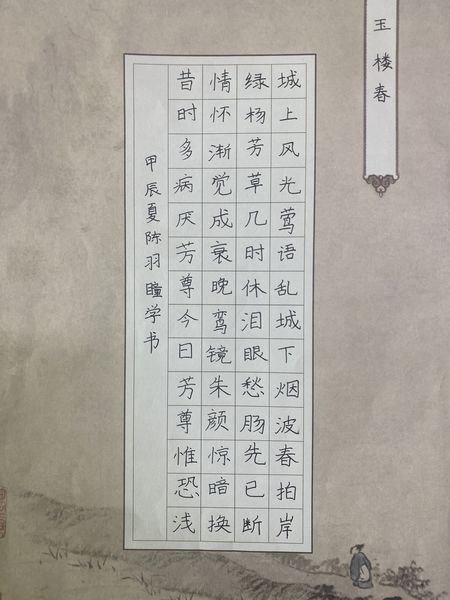 玉楼春
城上风光莺语乱城下烟波春拍岸
绿杨芳草几时休泪眼愁肠先已断
情怀渐觉成衰晚鸾镜朱颜惊暗换
昔时多病厌芳尊今日芳尊惟恐浅
甲辰夏陈羽瞳学书